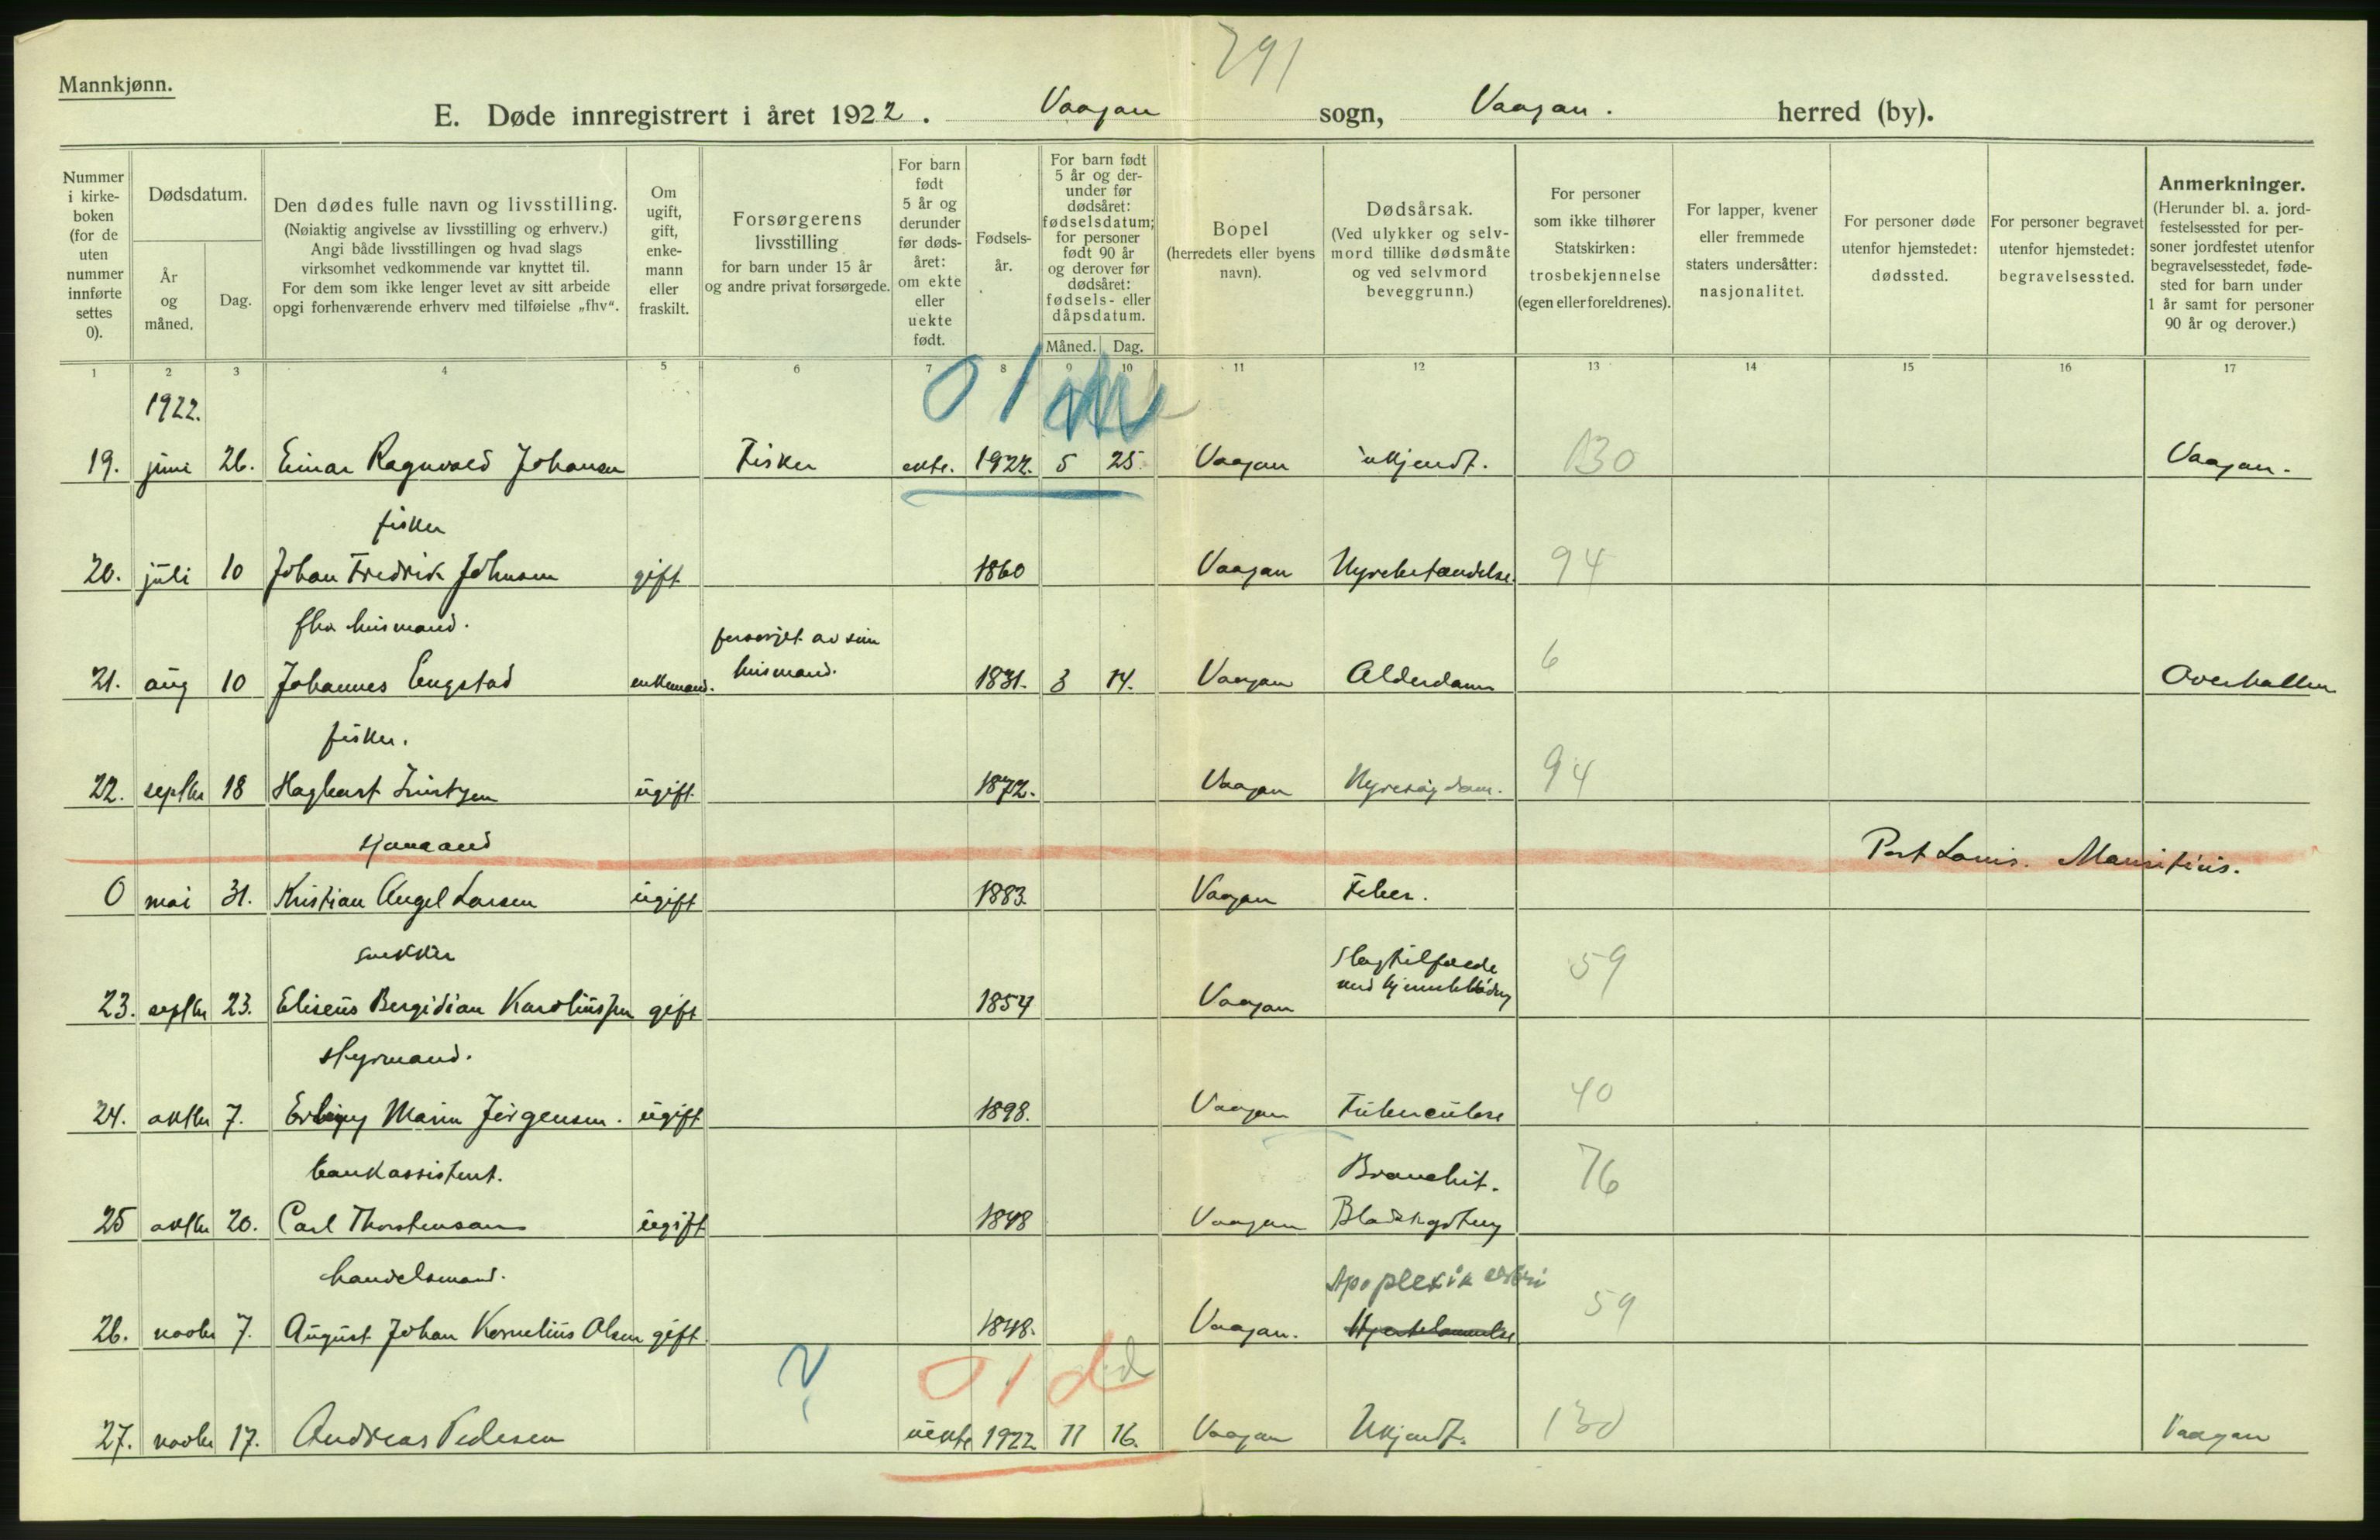 791
Mannkjønn.
E. Døde innregistrert i året 1922. Vaagan sogn, Vaagan. herred (by).
Nummer i kirkeboken (for de uten nummer innførte settes 0).
Dødsdatum.
År og måned.
Dag.
Den dødes fulle navn og livsstilling.
(Nøiaktig angivelse av livsstilling og erhverv.)
Angi både livsstillingen og hvad slags
virksomhet vedkommende var knyttet til.
For dem som ikke lenger levet av sitt arbeide
opgi forhenværende erhverv med tilføielse „fhv“.
Om ugift, gift, enkemann eller fraskilt.
Forsørgerens livsstilling
for barn under 15 år
og andre privat forsørgede.
For barn født 5 år og derunder før dødsåret: om ekte eller uekte født.
Fødselsår.
For barn født 5 år og derunder før dødsåret: fødselsdatum; for personer født 90 år og derover før dødsåret: fødsels- eller dåpsdatum.
Måned. Dag.
Bopel
(herredets eller byens navn).
Dødsårsak.
(Ved ulykker og selvmord tillike dødsmåte og ved selvmord beveggrunn.)
For personer som ikke tilhører Statskirken: trosbekjennelse (egen eller foreldrenes).
For lapper, kvener eller fremmede staters undersåtter: nasjonalitet.
For personer døde utenfor hjemstedet: dødssted.
For personer begravet utenfor hjemstedet: begravelsessted.
Anmerkninger.
(Herunder bl. a. jordfestelsessted for personer jordfestet utenfor begravelsesstedet, fødested for barn under 1 år samt for personer 90 år og derover.)
1 2 3 4 5 6 7 8 9 10 11 12 13 14 15 16 17
1922. 0 1
19. juni 26. Einar Ragnvald Johansen Fisker ekte. 1922. 5 25. Vaagan ukjendt. 130 Vaagan.
fisker
20. juli 10 Johan Fredrik Johnsen gift 1860 Vaagan Nyrebetændelse. 94
fhv husmand. forsørjet av sin
21. aug 10 Johannes Engstad enkemand. husmand. 1831. 3 14. Vaagan Alderdom 6 Overhallen
fisker.
22. septbr 18 Hagbart ugift 1872. Vaagan Nyresygdom. 94
sjømand Port Louis. Mauritius.
0 mai 31. Kristian Angel Larsen ugift 1883. Vaagan Feber.
snekker Slagtilfælde
23. septbr 23. Eliseus Bergidian Karoliussen gift 1854 Vaagan med hjerneblødn. 59
styrmand.
24. oktbr 7. Erling Marin Jørgensen. ugift 1898. Vaagan Tuberculose 40
bankassistent. Bronchit. 76
25 oktbr 20. Carl Thorstensen ugift 1848 Vaagan
handelsmand. Apoplexia cerebri
26. novbr 7. August Johan Kornelius Olsen gift. 1848. Vaagan. Hjertelammelse 59
? 0 1 d d
27. novbr 17. Andreas Pedersen uekte 1922 11 16. Vaagan Ukjendt. 130 Vaagan